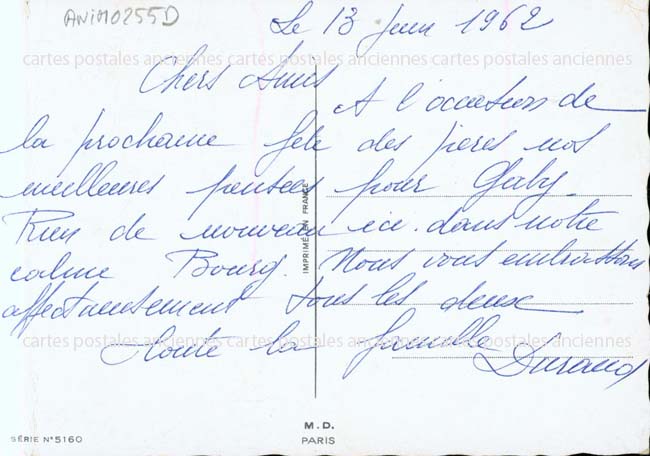 ANIM0255D
Le 13 Juin 1962
cartes postales anciennes cartes postales anciennes
Chers Amis
A l'occasion de
la prochaine fête des pères nos
meilleures pensées pour Gaby.
Rien de nouveau ici. dans notre
calme Bourg. Nous vous embrassons
affectueusement tous les deux
cartes postales anciennes cartes postales anciennes
Toute la famille Durand
IMPRIMÉ EN FRANCE
M.D.
SÉRIE N° 5160
PARIS